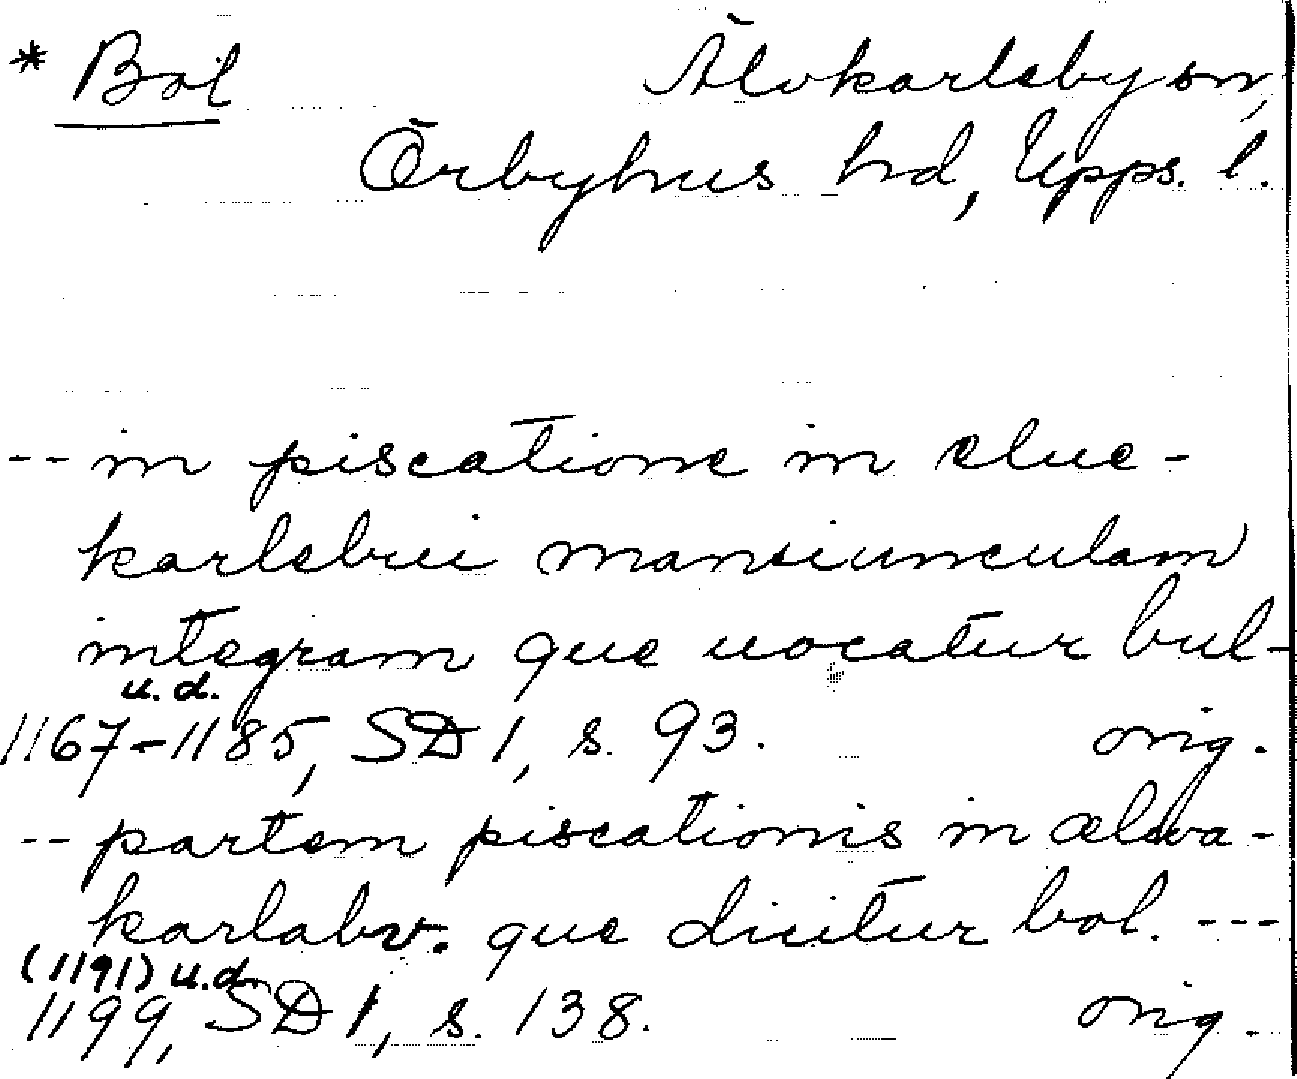 * Bol Älvkarleby sn,
Örbyhus hd, Upps. l.
-- in piscatione in elue-
karlebui mansiunculam
integram que uocatur bul-
u. d.
1167-1185, SD 1, s. 93. orig.
-- partem piscationis in ælwa-
karlabv. que dicitur bol. ---
(1191) u.d.
1199, SD 1, s. 138. orig.